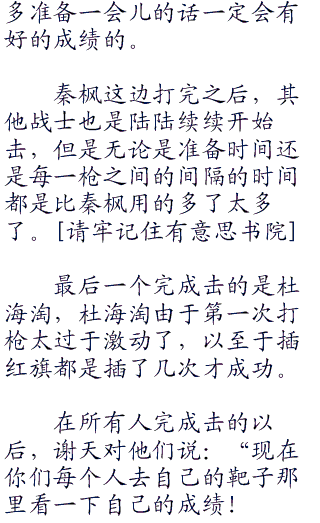 多准备一会儿的话一定会有
好的成绩的。
秦枫这边打完之后，其
他战士也是陆陆续续开始
击，但是无论是准备时间还
是每一枪之间的间隔的时间
都是比秦枫用的多了太多
了。[请牢记住有意思书院]
最后一个完成击的是杜
海淘，杜海淘由于第一次打
枪太过于激动了，以至于插
红旗都是插了几次才成功。
在所有人完成击的以
后，谢天对他们说：“现在
你们每个人去自己的靶子那
里看一下自己的成绩！